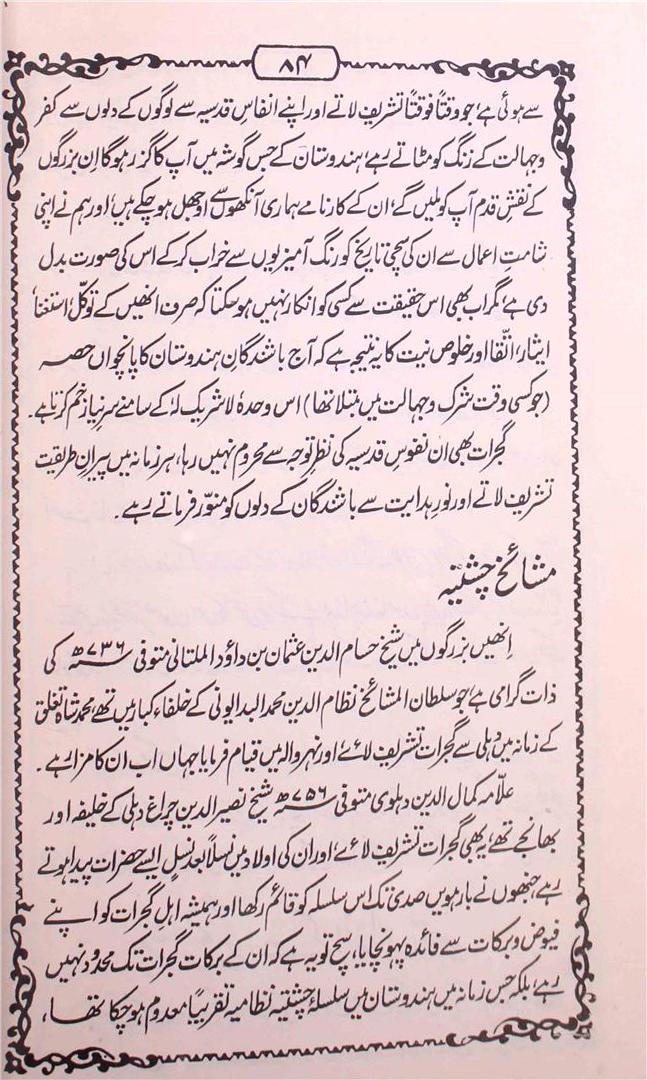 ۸۴
سے ہوئی ہے، جو وقتاً فوقتاً تشریف لاتے اور اپنے انفاس قدسیہ سے لوگوں کے دلوں سے کفر
وجہالت کے زنگ کو مٹاتے رہے، ہندوستان کے جس گوشہ میں آپ کا گزر ہوگا ان بزرگوں
کے نقش قدم آپ کو ملیں گے، ان کے کارنامے ہماری آنکھوں سے اوجھل ہو چکے ہیں، اور ہم نے اپنی
شامتِ اعمال سے ان کی سچی تاریخ کو رنگ آمیزیوں سے خراب کر کے اس کی صورت بدل
دی ہے، مگر اب بھی اس حقیقت سے کسی کو انکار نہیں ہو سکتا کہ صرف انھیں کے توکّل، استغنا،
ایثار، اتّقا اور خلوص نیت کا یہ نتیجہ ہے کہ آج باشندگانِ ہندوستان کا پانچواں حصہ
(جو کسی وقت شرک وجہالت میں مبتلا تھا) اس وحدہٗ لاشریک لہٗ کے سامنے سرِ نیاز خم کرتا ہے۔
گجرات بھی ان نفوسِ قدسیہ کی نظرِ توجہ سے محروم نہیں رہا، ہر زمانہ میں پیرانِ طریقت
تشریف لاتے اور نورِ ہدایت سے باشندگان کے دلوں کو منوّر فرماتے رہے۔
مشائخ چشتیہ
انھیں بزرگوں میں شیخ حسام الدین عثمان بن داؤد الملتانی متوفی ۷۳۶ھ کی
ذات گرامی ہے، جو سلطان المشائخ نظام الدین محمد البدایونی کے خلفاء کبار میں تھے، محمد شاہ تغلق
کے زمانہ میں دہلی سے گجرات تشریف لائے اور نہروالہ میں قیام فرمایا جہاں اب ان کا مزار ہے۔
علّامہ کمال الدین دہلوی متوفی ۷۵۶ھ شیخ نصیر الدین چراغ دہلی کے خلیفہ اور
بھانجے تھے، یہ بھی گجرات تشریف لائے، اور ان کی اولاد میں نسلاً بعد نسلٍ ایسے حضرات پیدا ہوتے
رہے، جنھوں نے بارہویں صدی تک اس سلسلہ کو قائم رکھا اور ہمیشہ اہلِ گجرات کو اپنے
فیوض وبرکات سے فائدہ پہونچایا، سچ تو یہ ہے کہ ان کے برکات گجرات تک محدود نہیں
رہے، بلکہ جس زمانہ میں ہندوستان میں سلسلۂ چشتیہ نظامیہ تقریباً معدوم ہو چکا تھا،